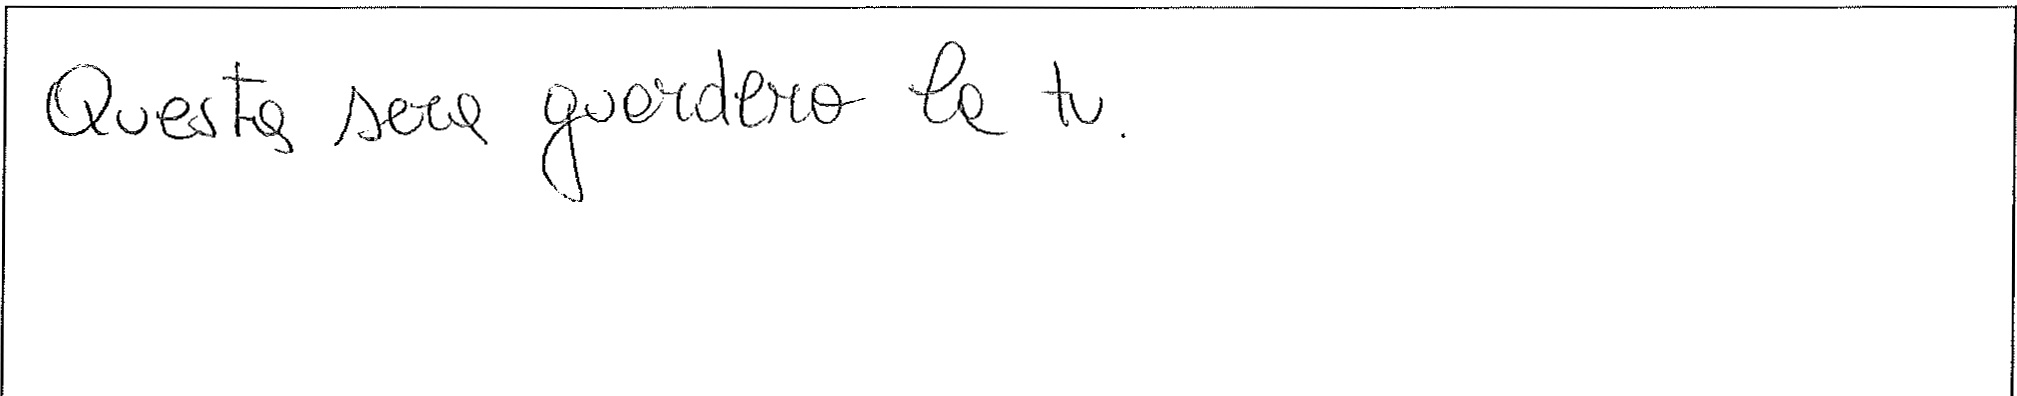 Questa sera guardero la tv.